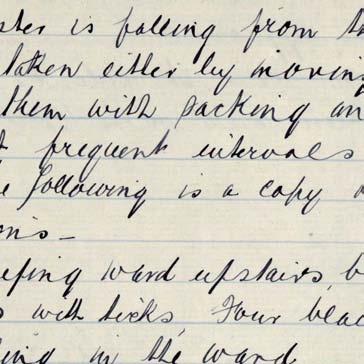 ster is falling from th
taken either by moving
them with sacking an
frequent intervals
e following is a copy o
ons—
eping ward upstairs, b
s with ticks, Four bea
ing in the ward